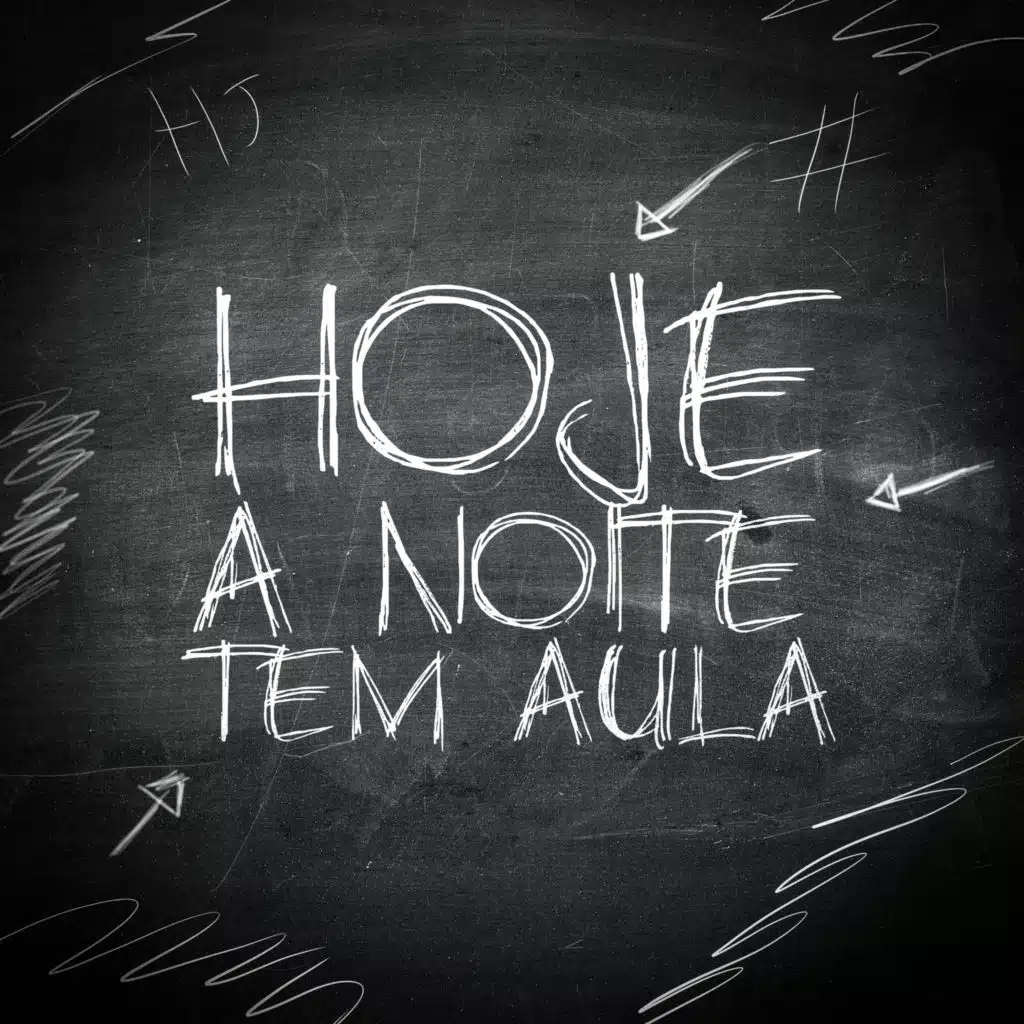 HOJE
A NOITE
TEM AULA